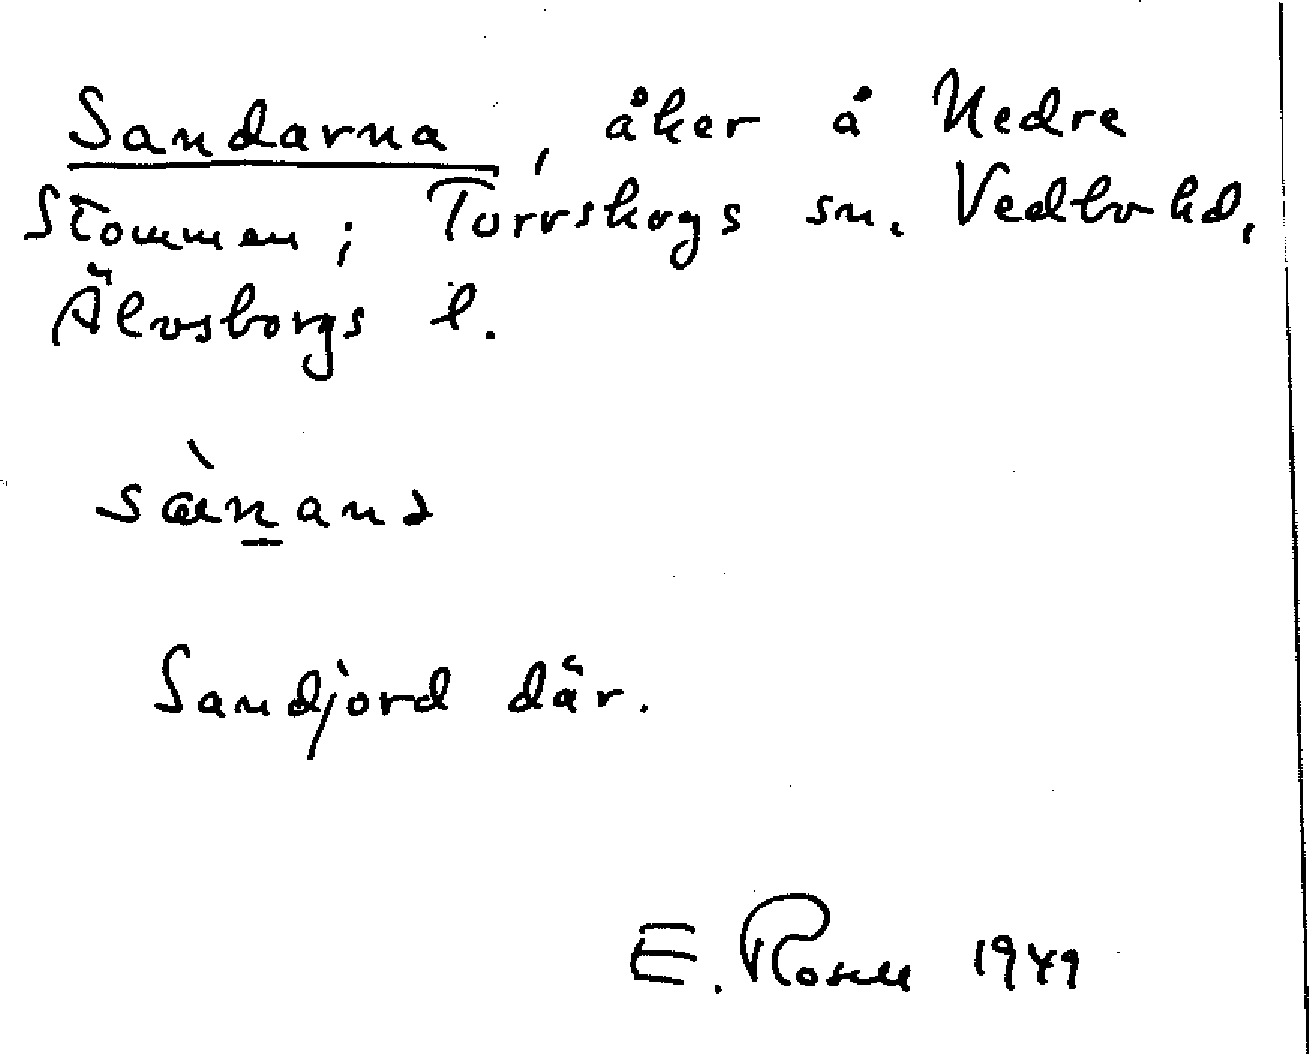 Sandarna, åker å Nedre
Stommen; Torrskogs sn. Vedbo hd,
Älvsborgs l.
Sandjord där.
E. Rosell 1949